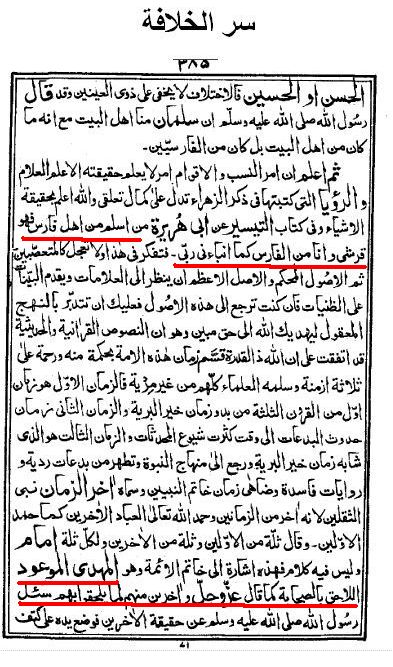 سر الخلافة
٣٨٥
الحسن او الحسين فالاختلاف لا يخفى على ذوى العينين وقد قال
رسول الله صلى الله عليه وسلم ان سلمان منا اهل البيت مع انه ما
كان من اهل البيت بل كان من الفارسيين۔
ثم اعلم ان امر النسب والاقوام امر لا يعلم حقيقته الا علم العلام
والرؤيا التى كتبتها فى ذكر الزهراء تدل على كمال تعلقى والله اعلم بحقيقة
الاشياء وفى كتاب التيسير عن ابى هريرة من اسلم من اهل فارس فهو
قرشى وانا من الفارس كما انبأنى ربى۔ فتفكر فى هذا ولا تعجل كالمتعصبين
ثم الاصول المحكم والاصل الاعظم ان ينظر الى العلامات ويقدم البينات
على الظنيات فان كنت ترجع الى هذه الاصول فعليك ان تتدبر بالنهج
المعقول ليهديك الله الى حق مبين وهو ان النصوص القرآنية والحديثية
قد اتفقت على ان الله ذا القدرة قسم زمان هذه الامة بحكمة منه ورحمة على
ثلاثة ازمنة وسلمه العلماء كلهم من غير مرية فالزمان الاول هو زمان
اول من القرون الثلثة من بدو زمان خير البرية والزمان الثانى زمان
حدوث البدعات الى وقت كثرت شيوع المحدثات والزمان الثالث هو الذى
شابه زمان خير البرية ورجع الى منهاج النبوة وتطهر من بدعات ردية و
روايات فاسدة وضاهى زمان خاتم النبيين وسماه آخر الزمان نبى
الثقلين لانه آخر من الزمانين وحمد الله تعالى العباد الآخرين كما حمد
الاولين۔ وقال ثلة من الاولين وثلة من الآخرين ولكل ثلة امام
وليس فيه كلام فهذه اشارة الى خاتم الائمة وهو المهدى الموعود
اللاحق بالصحابة كما قال عز وجل وآخرين منهم لما يلحقوا بهم سئل
رسول الله صلى الله عليه وسلم عن حقيقة الآخرين فوضع يده على كتف